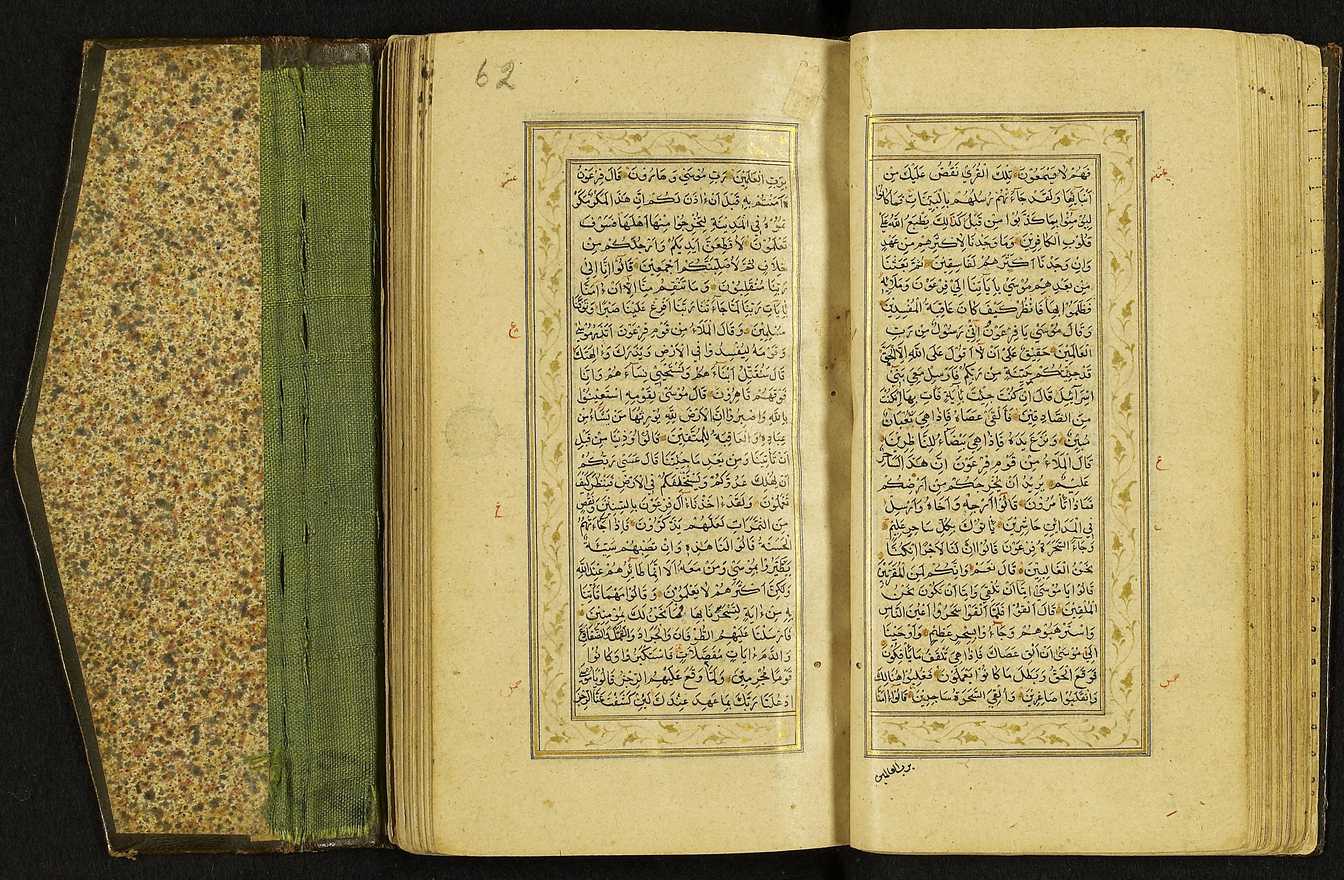 فَهُمْ لَا يَسْمَعُونَ تِلْكَ الْقُرٰى نَقُصُّ عَلَيْكَ مِنْ
اَنْبَائِهَا وَلَقَدْ جَاءَتْهُمْ رُسُلُهُمْ بِالْبَيِّنَاتِ فَمَا كَانُوا
لِيُؤْمِنُوا بِمَا كَذَّبُوا مِنْ قَبْلُ كَذٰلِكَ يَطْبَعُ اللّٰهُ عَلٰى
قُلُوبِ الْكَافِرِينَ وَمَا وَجَدْنَا لِاَكْثَرِهِمْ مِنْ عَهْدٍ
وَاِنْ وَجَدْنَا اَكْثَرَهُمْ لَفَاسِقِينَ ثُمَّ بَعَثْنَا
مِنْ بَعْدِهِمْ مُوسٰى بِاٰيَاتِنَا اِلٰى فِرْعَوْنَ وَمَلَائِهِ
فَظَلَمُوا بِهَا فَانْظُرْ كَيْفَ كَانَ عَاقِبَةُ الْمُفْسِدِينَ
وَقَالَ مُوسٰى يَا فِرْعَوْنُ اِنِّي رَسُولٌ مِنْ رَبِّ
الْعَالَمِينَ حَقِيقٌ عَلٰى اَنْ لَا اَقُولَ عَلَى اللّٰهِ اِلَّا الْحَقَّ
قَدْ جِئْتُكُمْ بِبَيِّنَةٍ مِنْ رَبِّكُمْ فَاَرْسِلْ مَعِيَ بَنِي
اِسْرَائِيلَ قَالَ اِنْ كُنْتَ جِئْتَ بِاٰيَةٍ فَأْتِ بِهَا اِنْ كُنْتَ
مِنَ الصَّادِقِينَ فَاَلْقٰى عَصَاهُ فَاِذَا هِيَ ثُعْبَانٌ
مُبِينٌ وَنَزَعَ يَدَهُ فَاِذَا هِيَ بَيْضَاءُ لِلنَّاظِرِينَ
قَالَ الْمَلَاءُ مِنْ قَوْمِ فِرْعَوْنَ اِنَّ هٰذَا لَسَاحِرٌ
عَلِيمٌ يُرِيدُ اَنْ يُخْرِجَكُمْ مِنْ اَرْضِكُمْ
فَمَاذَا تَأْمُرُونَ قَالُوا اَرْجِهْ وَاَخَاهُ وَاَرْسِلْ
فِي الْمَدَائِنِ حَاشِرِينَ يَأْتُوكَ بِكُلِّ سَاحِرٍ عَلِيمٍ
وَجَاءَ السَّحَرَةُ فِرْعَوْنَ قَالُوا اِنَّ لَنَا لَاَجْرًا اِنْ كُنَّا
نَحْنُ الْغَالِبِينَ قَالَ نَعَمْ وَاِنَّكُمْ لَمِنَ الْمُقَرَّبِينَ
قَالُوا يَا مُوسٰى اِمَّا اَنْ تُلْقِيَ وَاِمَّا اَنْ نَكُونَ نَحْنُ
الْمُلْقِينَ قَالَ اَلْقُوا فَلَمَّا اَلْقَوْا سَحَرُوا اَعْيُنَ النَّاسِ
وَاسْتَرْهَبُوهُمْ وَجَاءُوا بِسِحْرٍ عَظِيمٍ وَاَوْحَيْنَا
اِلٰى مُوسٰى اَنْ اَلْقِ عَصَاكَ فَاِذَا هِيَ تَلْقَفُ مَا يَأْفِكُونَ
فَوَقَعَ الْحَقُّ وَبَطَلَ مَا كَانُوا يَعْمَلُونَ فَغُلِبُوا هُنَالِكَ
وَانْقَلَبُوا صَاغِرِينَ وَاُلْقِيَ السَّحَرَةُ سَاجِدِينَ قَالُوا اٰمَنَّا
برب العالمين
62
بِرَبِّ الْعَالَمِينَ رَبِّ مُوسٰى وَهَارُونَ قَالَ فِرْعَوْنُ
ءَامَنْتُمْ بِهِ قَبْلَ اَنْ ءَاذَنَ لَكُمْ اِنَّ هٰذَا لَمَكْرٌ مَكَرْ
تُمُوهُ فِي الْمَدِينَةِ لِتُخْرِجُوا مِنْهَا اَهْلَهَا فَسَوْفَ
تَعْلَمُونَ لَاُقَطِّعَنَّ اَيْدِيَكُمْ وَاَرْجُلَكُمْ مِنْ
خِلَافٍ ثُمَّ لَاُصَلِّبَنَّكُمْ اَجْمَعِينَ قَالُوا اِنَّا اِلٰى
رَبِّنَا مُنْقَلِبُونَ وَمَا تَنْقِمُ مِنَّا اِلَّا اَنْ ءَامَنَّا
بِاٰيَاتِ رَبِّنَا لَمَّا جَاءَتْنَا رَبَّنَا اَفْرِغْ عَلَيْنَا صَبْرًا وَتَوَفَّنَا
مُسْلِمِينَ وَقَالَ الْمَلَاءُ مِنْ قَوْمِ فِرْعَوْنَ اَتَذَرُ مُوسٰى
وَقَوْمَهُ لِيُفْسِدُوا فِي الْاَرْضِ وَيَذَرَكَ وَءَالِهَتَكَ
قَالَ سَنُقَتِّلُ اَبْنَاءَهُمْ وَنَسْتَحْيِي نِسَاءَهُمْ وَاِنَّا
فَوْقَهُمْ قَاهِرُونَ قَالَ مُوسٰى لِقَوْمِهِ اسْتَعِينُوا
بِاللّٰهِ وَاصْبِرُوا اِنَّ الْاَرْضَ لِلّٰهِ يُورِثُهَا مَنْ يَشَاءُ مِنْ
عِبَادِهِ وَالْعَاقِبَةُ لِلْمُتَّقِينَ قَالُوا اُوذِينَا مِنْ قَبْلِ
اَنْ تَأْتِيَنَا وَمِنْ بَعْدِ مَا جِئْتَنَا قَالَ عَسٰى رَبُّكُمْ
اَنْ يُهْلِكَ عَدُوَّكُمْ وَيَسْتَخْلِفَكُمْ فِي الْاَرْضِ فَيَنْظُرَ كَيْفَ
تَعْمَلُونَ وَلَقَدْ اَخَذْنَا ءَالَ فِرْعَوْنَ بِالسِّنِينَ وَنَقْصٍ
مِنَ الثَّمَرَاتِ لَعَلَّهُمْ يَذَّكَّرُونَ فَاِذَا جَاءَتْهُمُ
الْحَسَنَةُ قَالُوا لَنَا هٰذِهِ وَاِنْ تُصِبْهُمْ سَيِّئَةٌ
يَطَّيَّرُوا بِمُوسٰى وَمَنْ مَعَهُ اَلَا اِنَّمَا طَائِرُهُمْ عِنْدَ اللّٰهِ
وَلٰكِنَّ اَكْثَرَهُمْ لَا يَعْلَمُونَ وَقَالُوا مَهْمَا تَأْتِنَا
بِهِ مِنْ ءَايَةٍ لِتَسْحَرَنَا بِهَا فَمَا نَحْنُ لَكَ بِمُؤْمِنِينَ
فَاَرْسَلْنَا عَلَيْهِمُ الطُّوفَانَ وَالْجَرَادَ وَالْقُمَّلَ وَالضَّفَادِعَ
وَالدَّمَ ءَايَاتٍ مُفَصَّلَاتٍ فَاسْتَكْبَرُوا وَكَانُوا
قَوْمًا مُجْرِمِينَ وَلَمَّا وَقَعَ عَلَيْهِمُ الرِّجْزُ قَالُوا يَا مُوسٰى
ادْعُ لَنَا رَبَّكَ بِمَا عَهِدَ عِنْدَكَ لَئِنْ كَشَفْتَ عَنَّا الرِّجْزَ